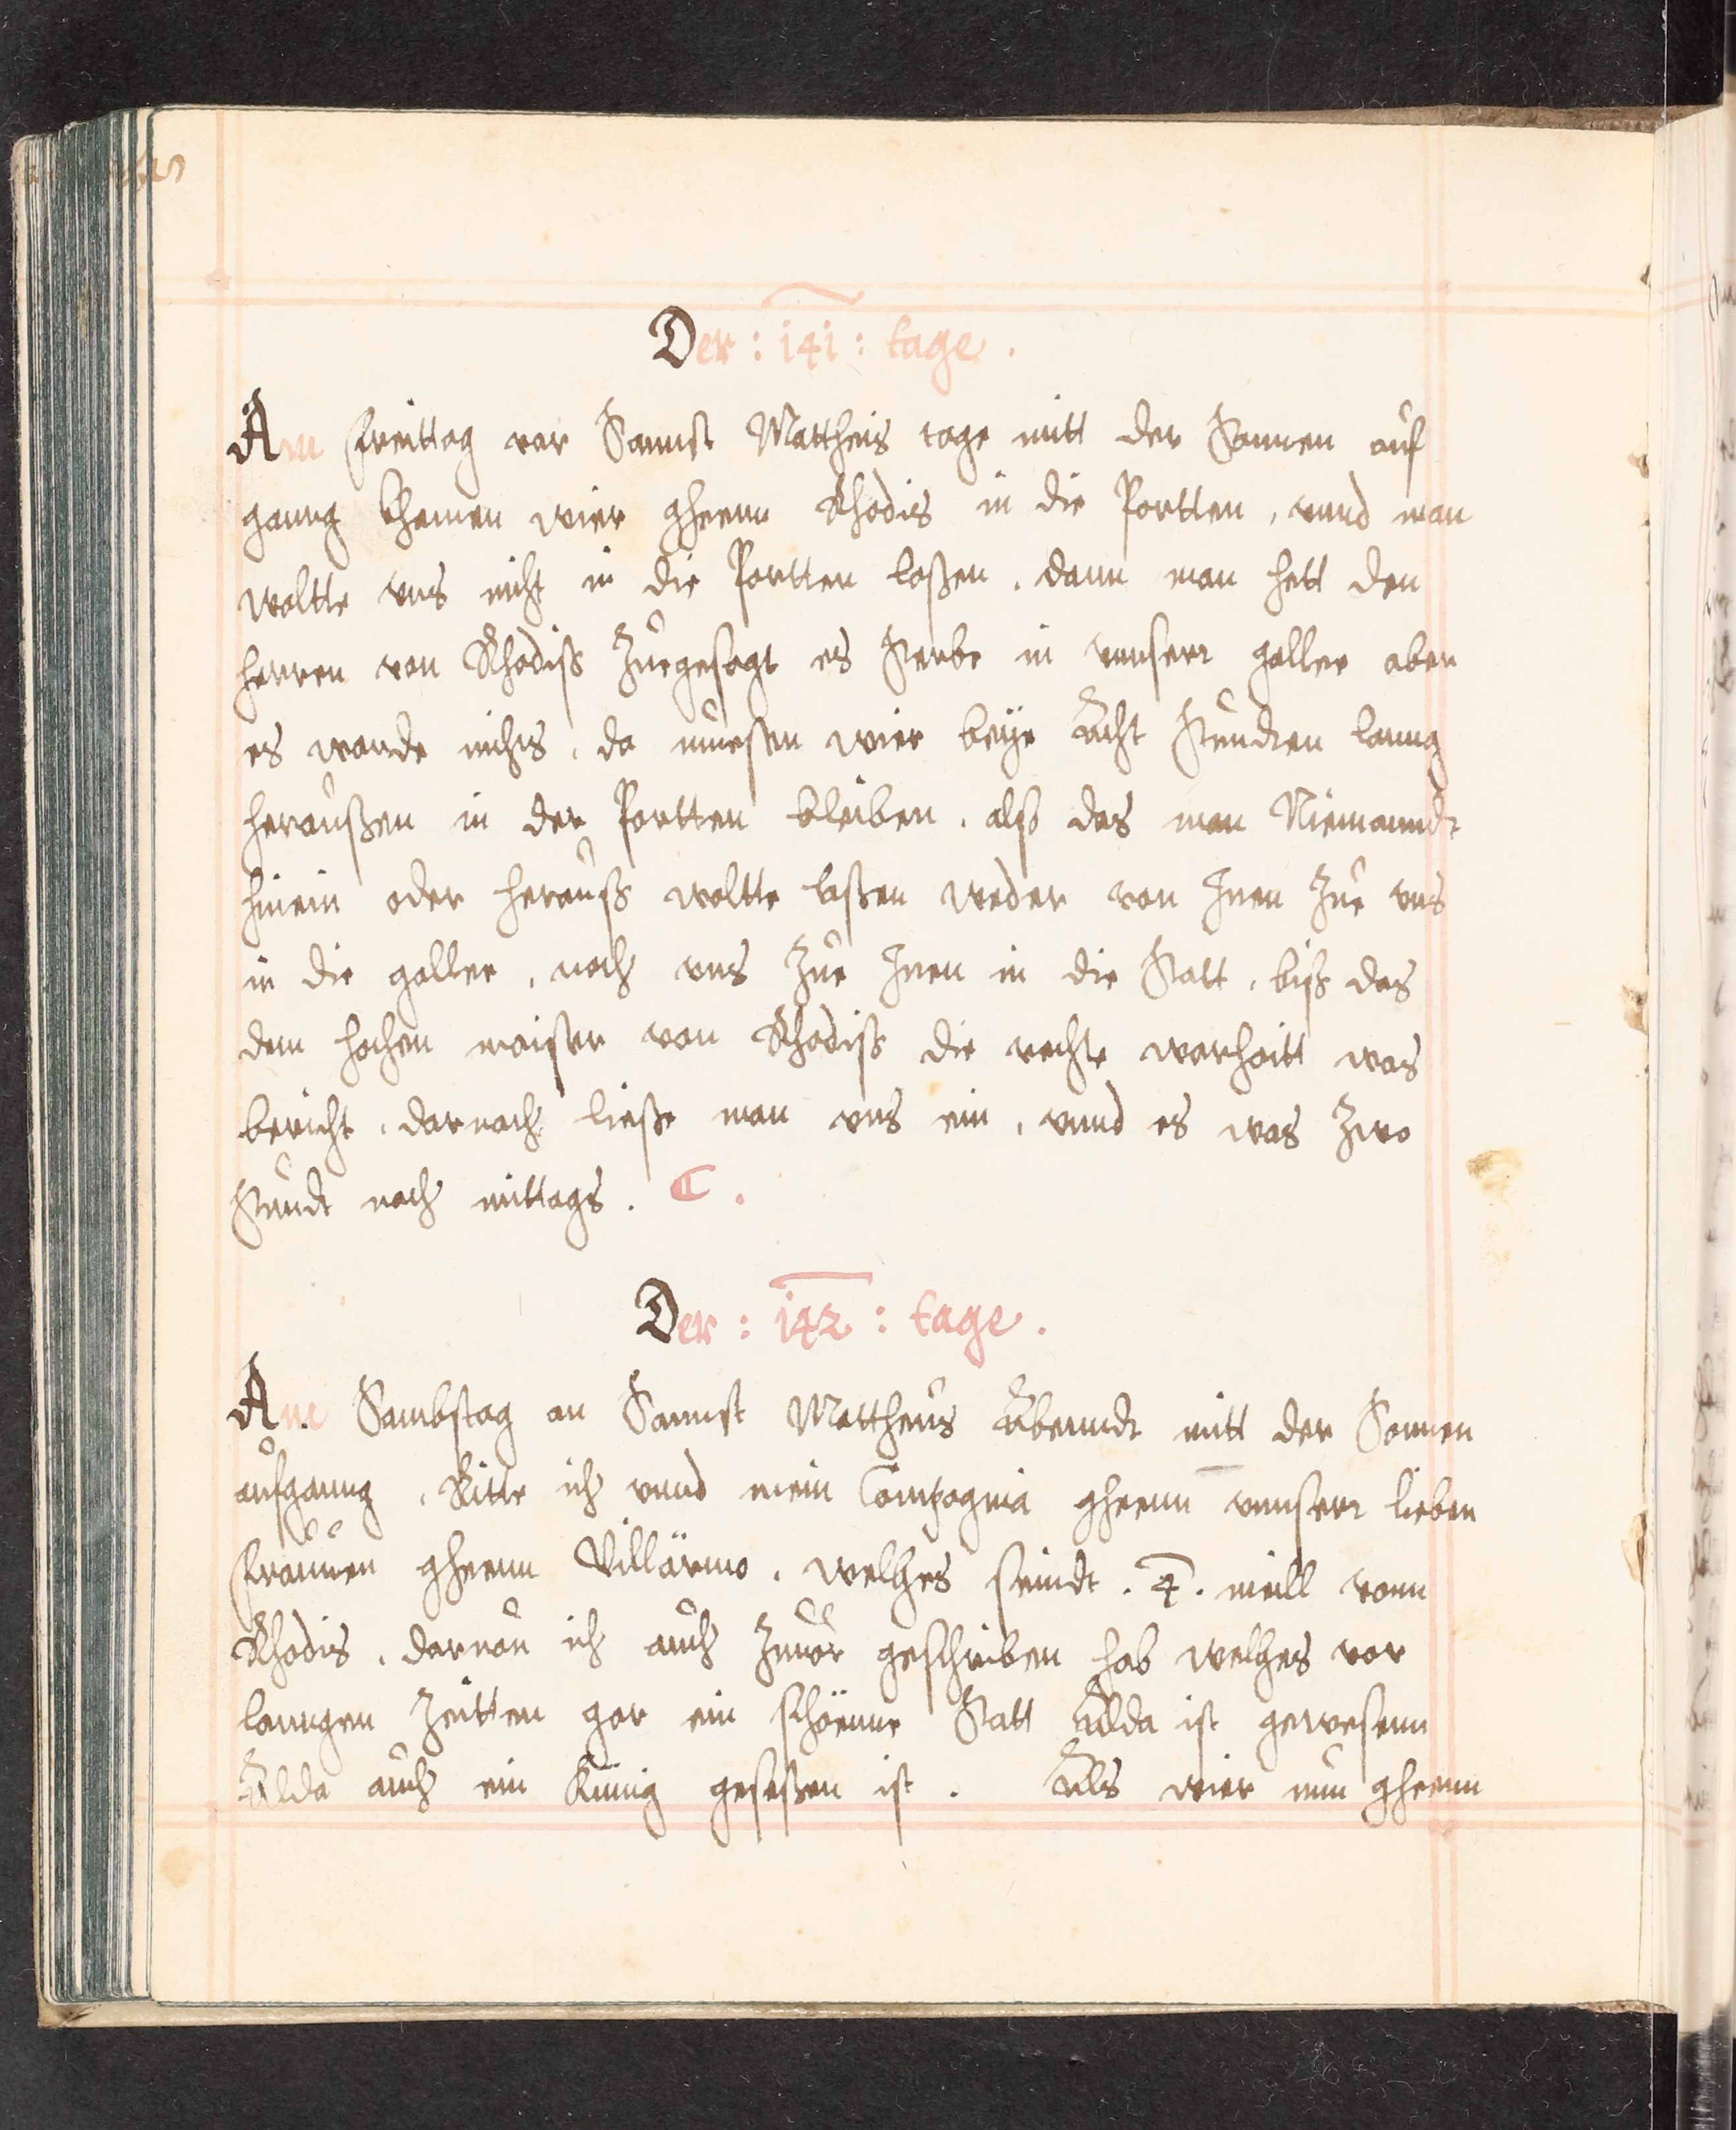 Der : 141 : tage .
Am freittag vor Sannst Mattheis tage mitt der Sonnen auf
ganng khamen wier gheenn Rhodis in die Portten , vnnd man
woltte vns nicht in die Portten laßen , dann man hett den
herren von Rhodiß Zuegesagt es sterbe in vnnserr gallee aber
es warde nichts , da muesten wier beÿe Acht Stundten lanng
heraußen in der Portten bleiben , alß das man Niemanndt
hinein oder herauß woltte laßen weder von Inen Zue vns
in die gallee , noch vns Zue Inen in die Statt , biß das
dem hochen maister von Rhodiß die rechte warhaitt was
bericht , darnach ließe man vns ein , vnnd es was Zwo
Stundt nach mittags . C .
Der : 142 : tage .
Am Sambstag an Sannst Mattheus Abenndt mitt der Sonnen
aufganng , Ritte ich vnnd mein Compagnia gheenn vnnserr lieben
frauuen gheenn Villärmo , welches seindt . 4 . meill vonn
Rhodis , daruon ich auch Zuuor geschriben hab welches vor
lanngen Zeitten gar ein schöenne Statt Allda ist gewesenn
Allda auch ein Künig geseßen ist . Als wier nun gheenn